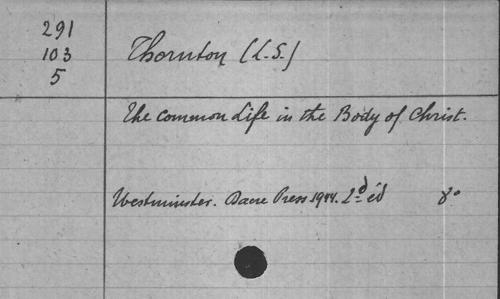 291
103
5
Thornton (L.S.)
The common Life in the Body of Christ.
Westminster. Dacre Press 1944. 2d éd 8°